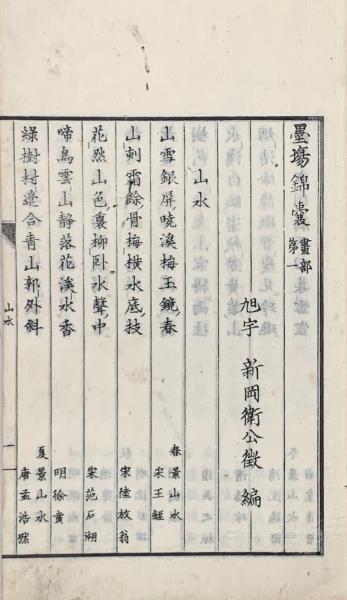 墨塲錦囊 畫部第一
旭宇 新岡衛公徵 編
山水
春景山水
山雪銀屏曉溪梅玉鏡春 宋王銍
山刺霜餘骨梅橫水底枝 宋陸放翁
花然山色裏柳臥水聲中 宋范石湖
啼鳥雲山靜落花溪水香 明徐賁
夏景山水
綠樹村邊合青山郭外斜 唐孟浩然
山水 一